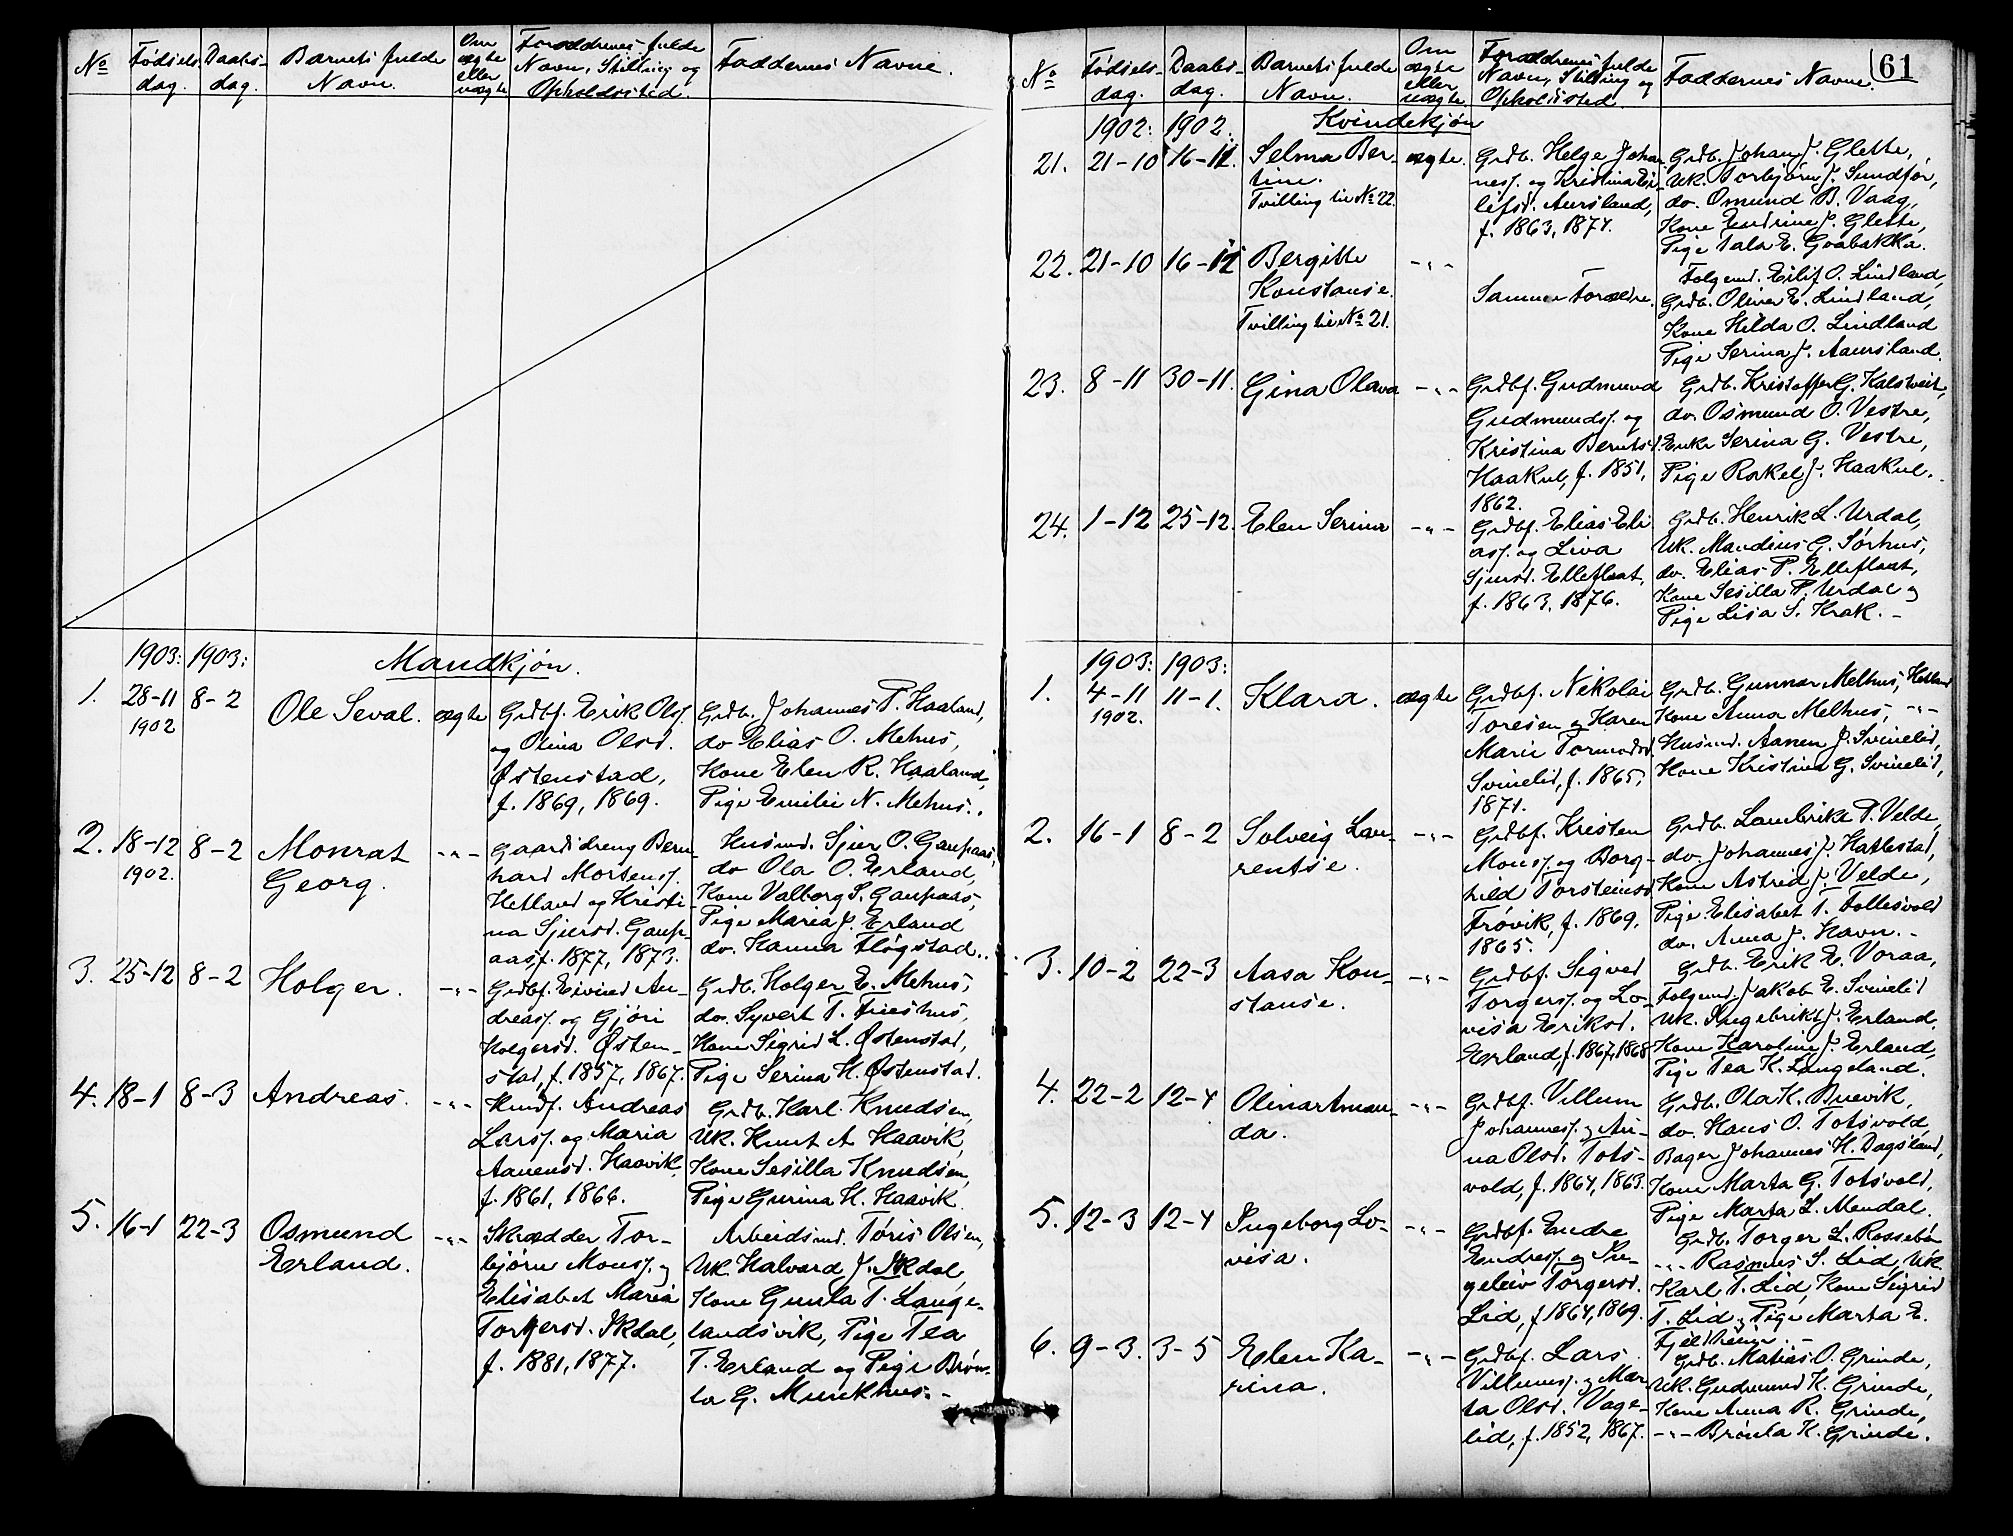 No
Fødsels-
dag.
Daabs-
dag.
Barnets fulde
Navn.
Om
ægte
eller
uægte
Forældrenes fulde
Navn, Stilling og
Opholdssted.
Faddernes Navne.
1903: 1903:
Mandkjøn.
1. 28-11
1902
8-2
Ole Seval.
ægte
Grdbf. Erik Olsf.
og Olina Olsd.
Østenstad,
f. 1869, 1869.
Grdb. Johannes T. Haaland,
do Elias O. Mehus,
Kone Elen R. Haaland,
Pige Emilie N. Mehus.
2. 18-12
1902.
8-2
Monrat
Georg.
-"-
Gaardidreng Bern
hard Mortensf.
Hetland og Kristi-
na Sjursd. Gaup-
aas f. 1877, 1873.
Husmd. Sjur O. Gaupaas,
do Ola O. Erland,
Kone Valborg S. Gaupaas,
Pige Maria J. Erland
do. Hanna Fløgstad.
3. 25-12
8-2
Holger.
-"-
Grdbf. Eivind An-
dreasf. og Gjøri
Holgersd. Østen-
stad, f. 1857, 1867.
Grdb. Holger E. Mehus,
do. Syvert T. Frieshus,
Kone Sigrid L. Østenstad,
Pige Serina H. Østenstad.
4. 18-1
8-3
Andreas.
-"-
Husmdf. Andreas
Larsf. og Maria
Aanensd. Haavik
f. 1861, 1866.
Grdb. Karl Knudsen,
Uk. Knut A. Haavik,
Kone Sesilla Knudsen,
Pige Gurina H. Haavik
5. 16-1
22-3
Osmund
Erland.
-"-
Skrædder Tor-
bjørn Monsf. og
Elisabet Maria
Torgersd. Ikdal,
f. 1881, 1877.
Arbeidsmd. Tøris Olsen,
Uk. Halvard J. Ikdal,
Kone Gunla T. Lange-
landsvik, Pige Tea
T. Erland og Pige Brøn-
la G. Munkhus.-
61
No
Fødsels-
dag.
Daabs-
dag.
Barnets fulde
Navn.
Om
ægte
eller
uægte
Forældrenes fulde
Navn, Stilling og
Opholdssted
Faddernes Navne.
1902: 1902.
Kvindekjøn
21. 21-10
16-11
Selma Ber-
tine.
Tvilling til No 22.
ægte.
Grdb. Helge Johan-
nesf. og Kristina Ei-
lifsd. Aursland,
f. 1863, 1874.
Grdb. Johan J. Glette,
Uk. Torbjørn J. Sundfør,
do. Omund B. Vaag,
Kone Endrine J. Glette,
Pige Tala E. Grabakka.
22. 21-10
16-11
Bergitte
Konstanse.
Tvilling til No 21.
-"-
Samme Forældre.
Følgemd. Eilif O. Lindland,
Grdb. Oliver E. Lindland,
Kone Hilda O. Lindland
Pige Serina J. Aaursland.
23. 8-11
30-11.
Gina Olava
-"-
Grdbf. Gudmund
Gudmundsf. og
Kristina Berntsd.
Haakul, f. 1851,
1862.
Grdb. Kristoffer G. Kalstveit,
do. Osmund O. Vestre,
Enke Serina G. Vestre,
Pige Rakel J. Haakul.
24. 1-12
25-12.
Elen Serina
-"-
Grdbf. Elias Eli-
asf. og Liva
Sjursd. Elleflaat,
f. 1863, 1876.
Grdb. Henrik L. Urdal,
Uk. Mandius G. Sørhus,
do. Elias P. Elleflaat,
Kone Sesilla P. Urdal og
Pige Lisa S. Krak. -
1903: 1903:
1. 4-11
1902.
11-1.
Klara.
ægte
Grdbf. Nikolai
Toresen og Karen
Marie Tormodsd.
Svinelid, f. 1865,
1871.
Grdb. Gunnar Melhus, Hetland
Kone Anna Melhus, -"-
Husmd. Aanen J. Svinelid,
Kone Kristina G. Svinelid,
2. 16-1
8-2
Solveig Lau-
rentse.
-"-
Grdbf. Kristen
Monsf. og Borg-
hild Torsteinsd.
Frøvik, f. 1869,
1865.
Grdb. Lambrikt T. Velde,
do. Johannes J. Hattestad,
Kone Astrid J. Velde,
Pige Elisabet T. Follesvold
do. Anna J. Havn.
3. 10-2
22-3
Aasa Kon-
stanse.
-"-
Grdbf. Sigved
Torgersf. og Lo-
visa Eriksd.
Erland, f. 1867, 1868
Grdb. Erik E. Voraa,
Folgemd. Jakob E. Svinelid
Uk. Ingebrikt J. Erland,
Kone Karoline J. Erland,
Pige Tea K. Langeland.
4. 22-2
12-4
Olina Aman-
da.
-"-
Grdbf. Villum
Johannesf. og An-
na Olsd. Tots-
vold, f. 1864, 1863.
Grdb. Ola K. Buevik,
do. Hans O. Totsvold,
Bager Johannes K. Dagsland,
Kone Marta G. Totsvold,
Pige Marta L. Mendal.
5. 12-3
12-4
Ingeborg Lo-
visa.
-"-
Grdbf. Endre
Endresf. og In-
geleiv Torgersd.
Lid, f 1864, 1869.
Grdb. Torger L. Rossebø
-"- Rasmus S. Lid, Uk
Karl T. Lid, Kone Sigrid
T. Lid, Pige Marta E.
Fjeldheim. -
6. 9-3.
3-5
Elen Ka-
rina.
-"-
Grdbf. Lars
Villumsf. og Mar-
ta Olsd. Vage-
lid, f. 1852, 1867.
Grdb. Matias O. Grinde,
Uk. Gudmund K. Grinde,
Kone Anna R. Grinde,
-"- Brønla K. Grinde.